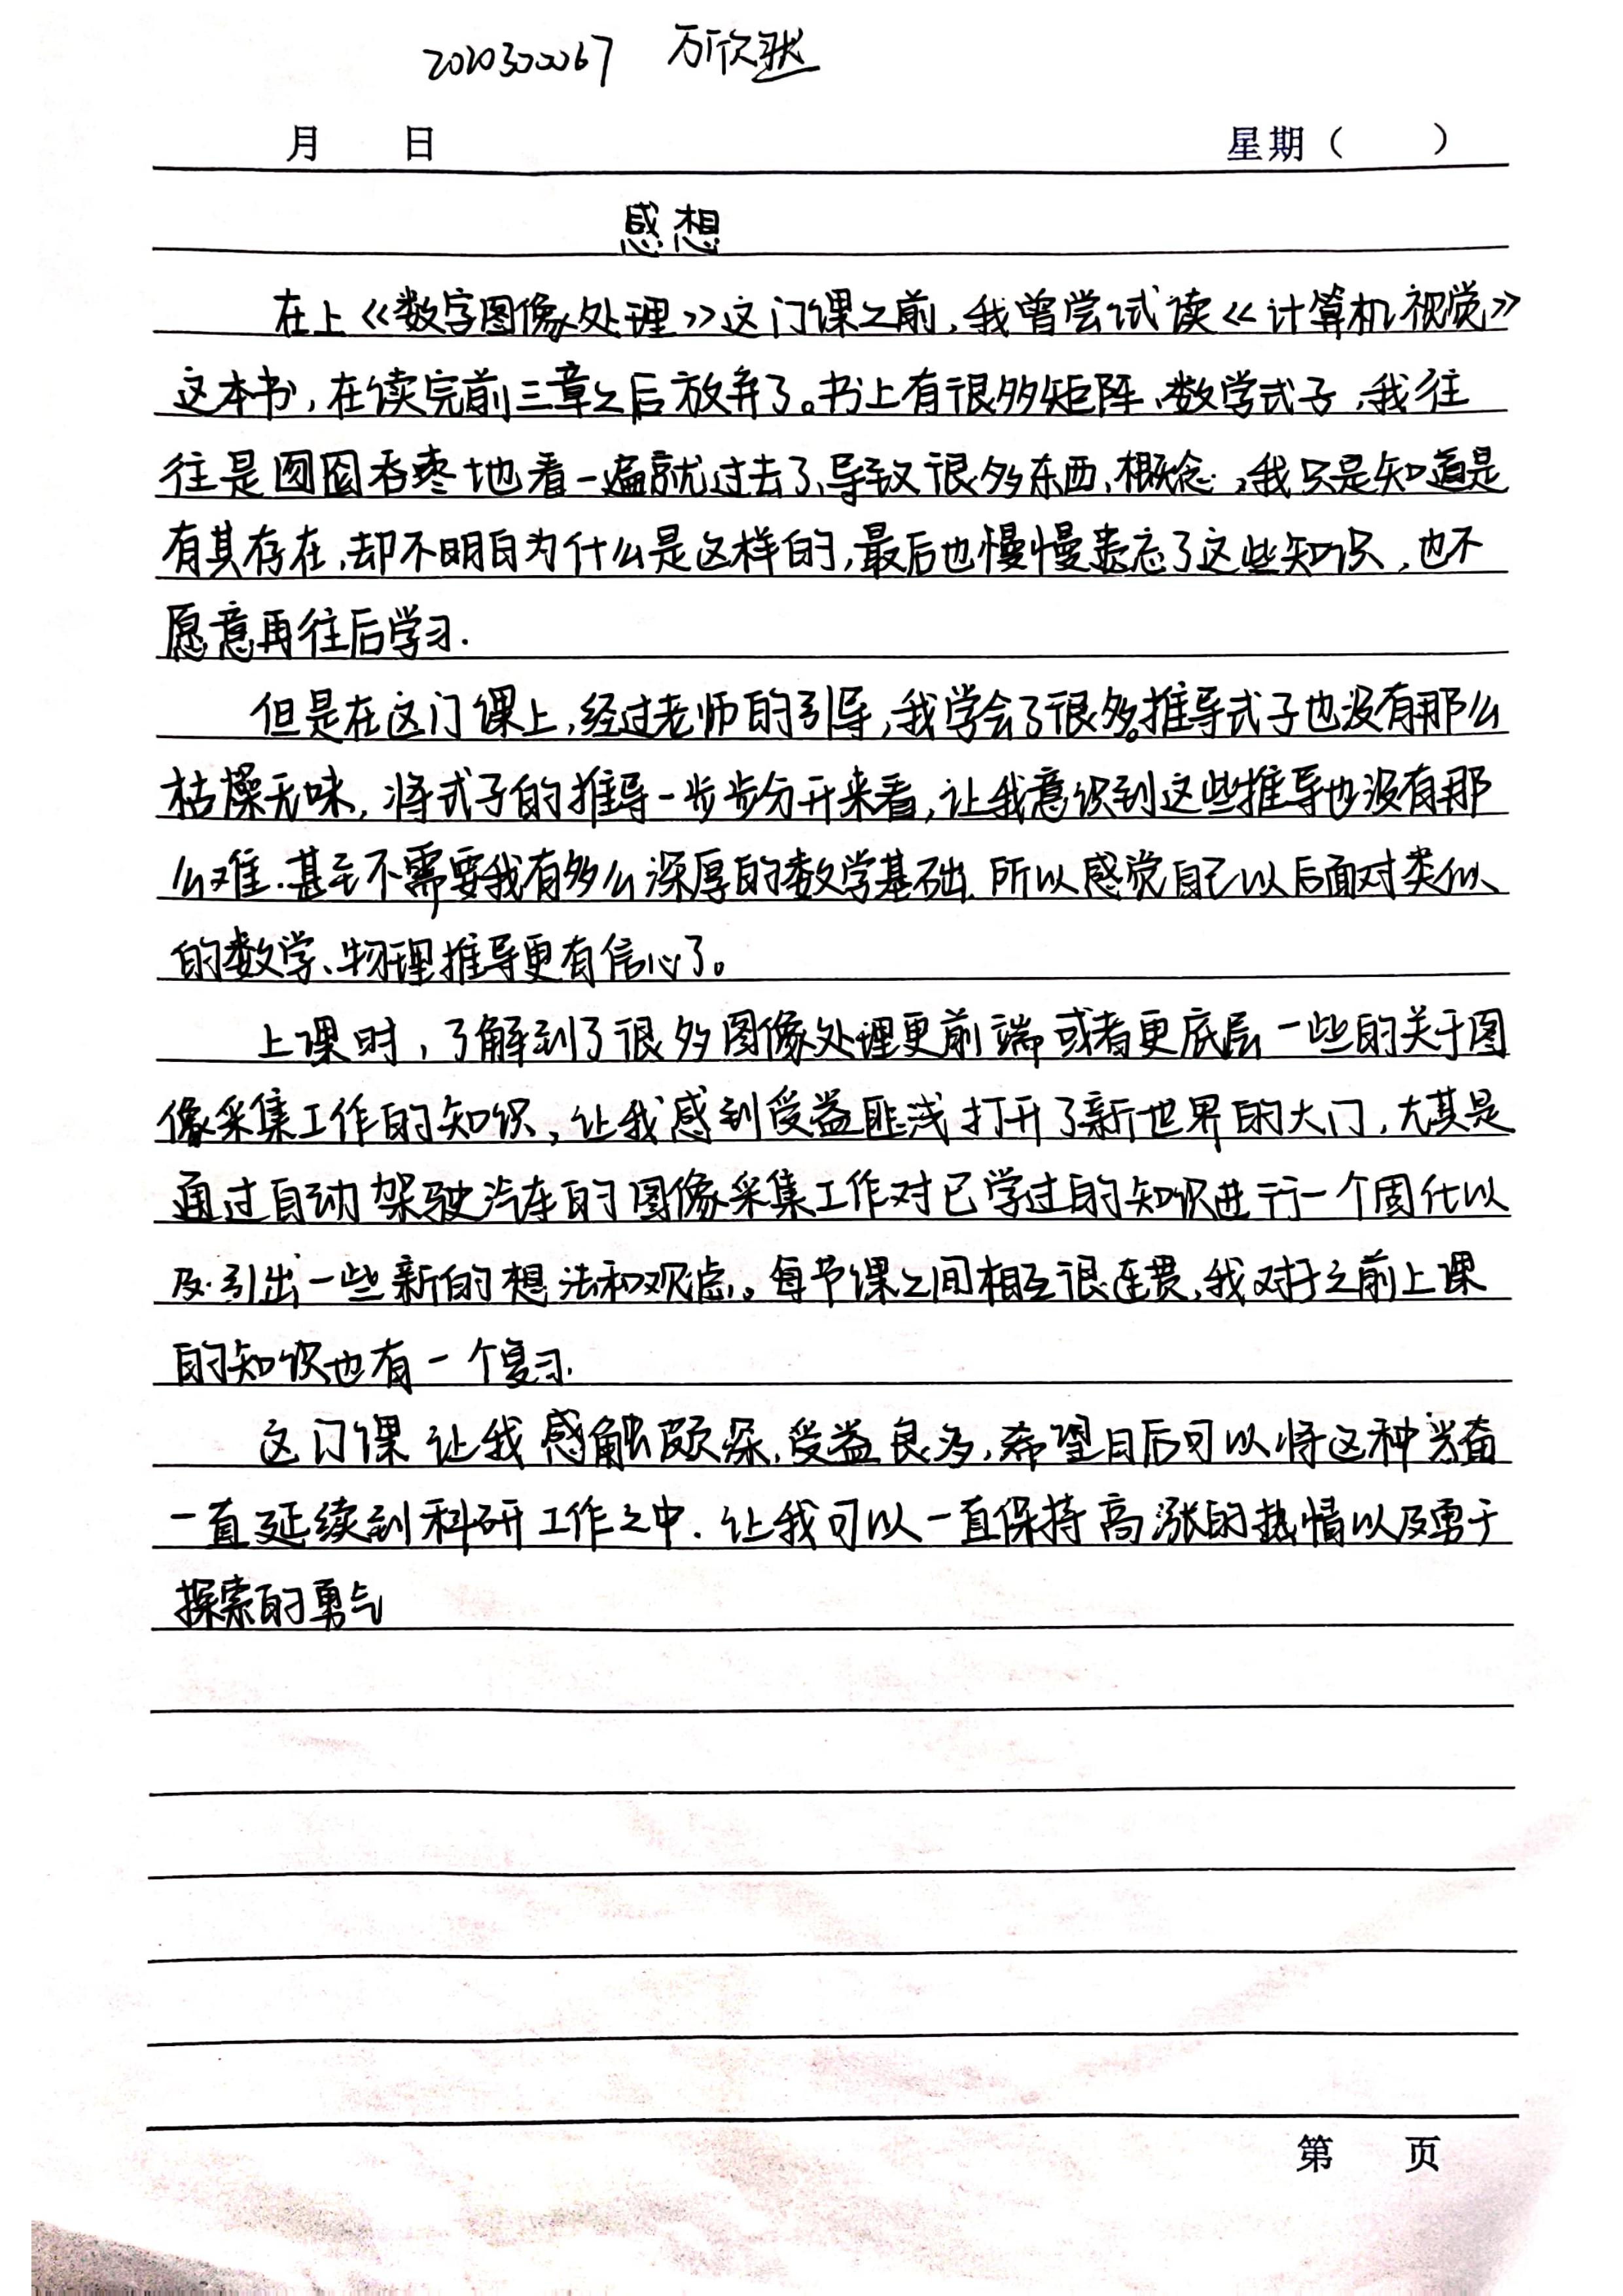 2020300067 万欣然
月 日 星期( )
感想
在上《数字图像处理》这门课之前,我曾尝试读《计算机视觉》
这本书,在读完前三章之后放弃了。书上有很多矩阵、数学式子,我往
往是囫囵吞枣地看一遍就过去了,导致很多东西、概念,我只是知道是
有其存在,却不明白为什么是这样的,最后也慢慢遗忘了这些知识,也不
愿意再往后学习.
但是在这门课上,经过老师的引导,我学会了很多。推导式子也没有那么
枯燥无味,将式子的推导一步步分开来看,让我意识到这些推导也没有那
么难.甚至不需要我有多么深厚的数学基础.所以感觉自己以后面对类似
的数学、物理推导更有信心了。
上课时,了解到了很多图像处理更前端或者更底层一些的关于图
像采集工作的知识,让我感到受益匪浅打开了新世界的大门,尤其是
通过自动驾驶汽车的图像采集工作对已学过的知识进行一个固化以
及引出一些新的想法和观点。每节课之间相互很连贯,我对于之前上课
的知识也有一个复习.
这门课让我感触颇深,受益良多,希望日后可以将这种兴奋
一直延续到科研工作之中.让我可以一直保持高涨的热情以及勇于
探索的勇气
第 页